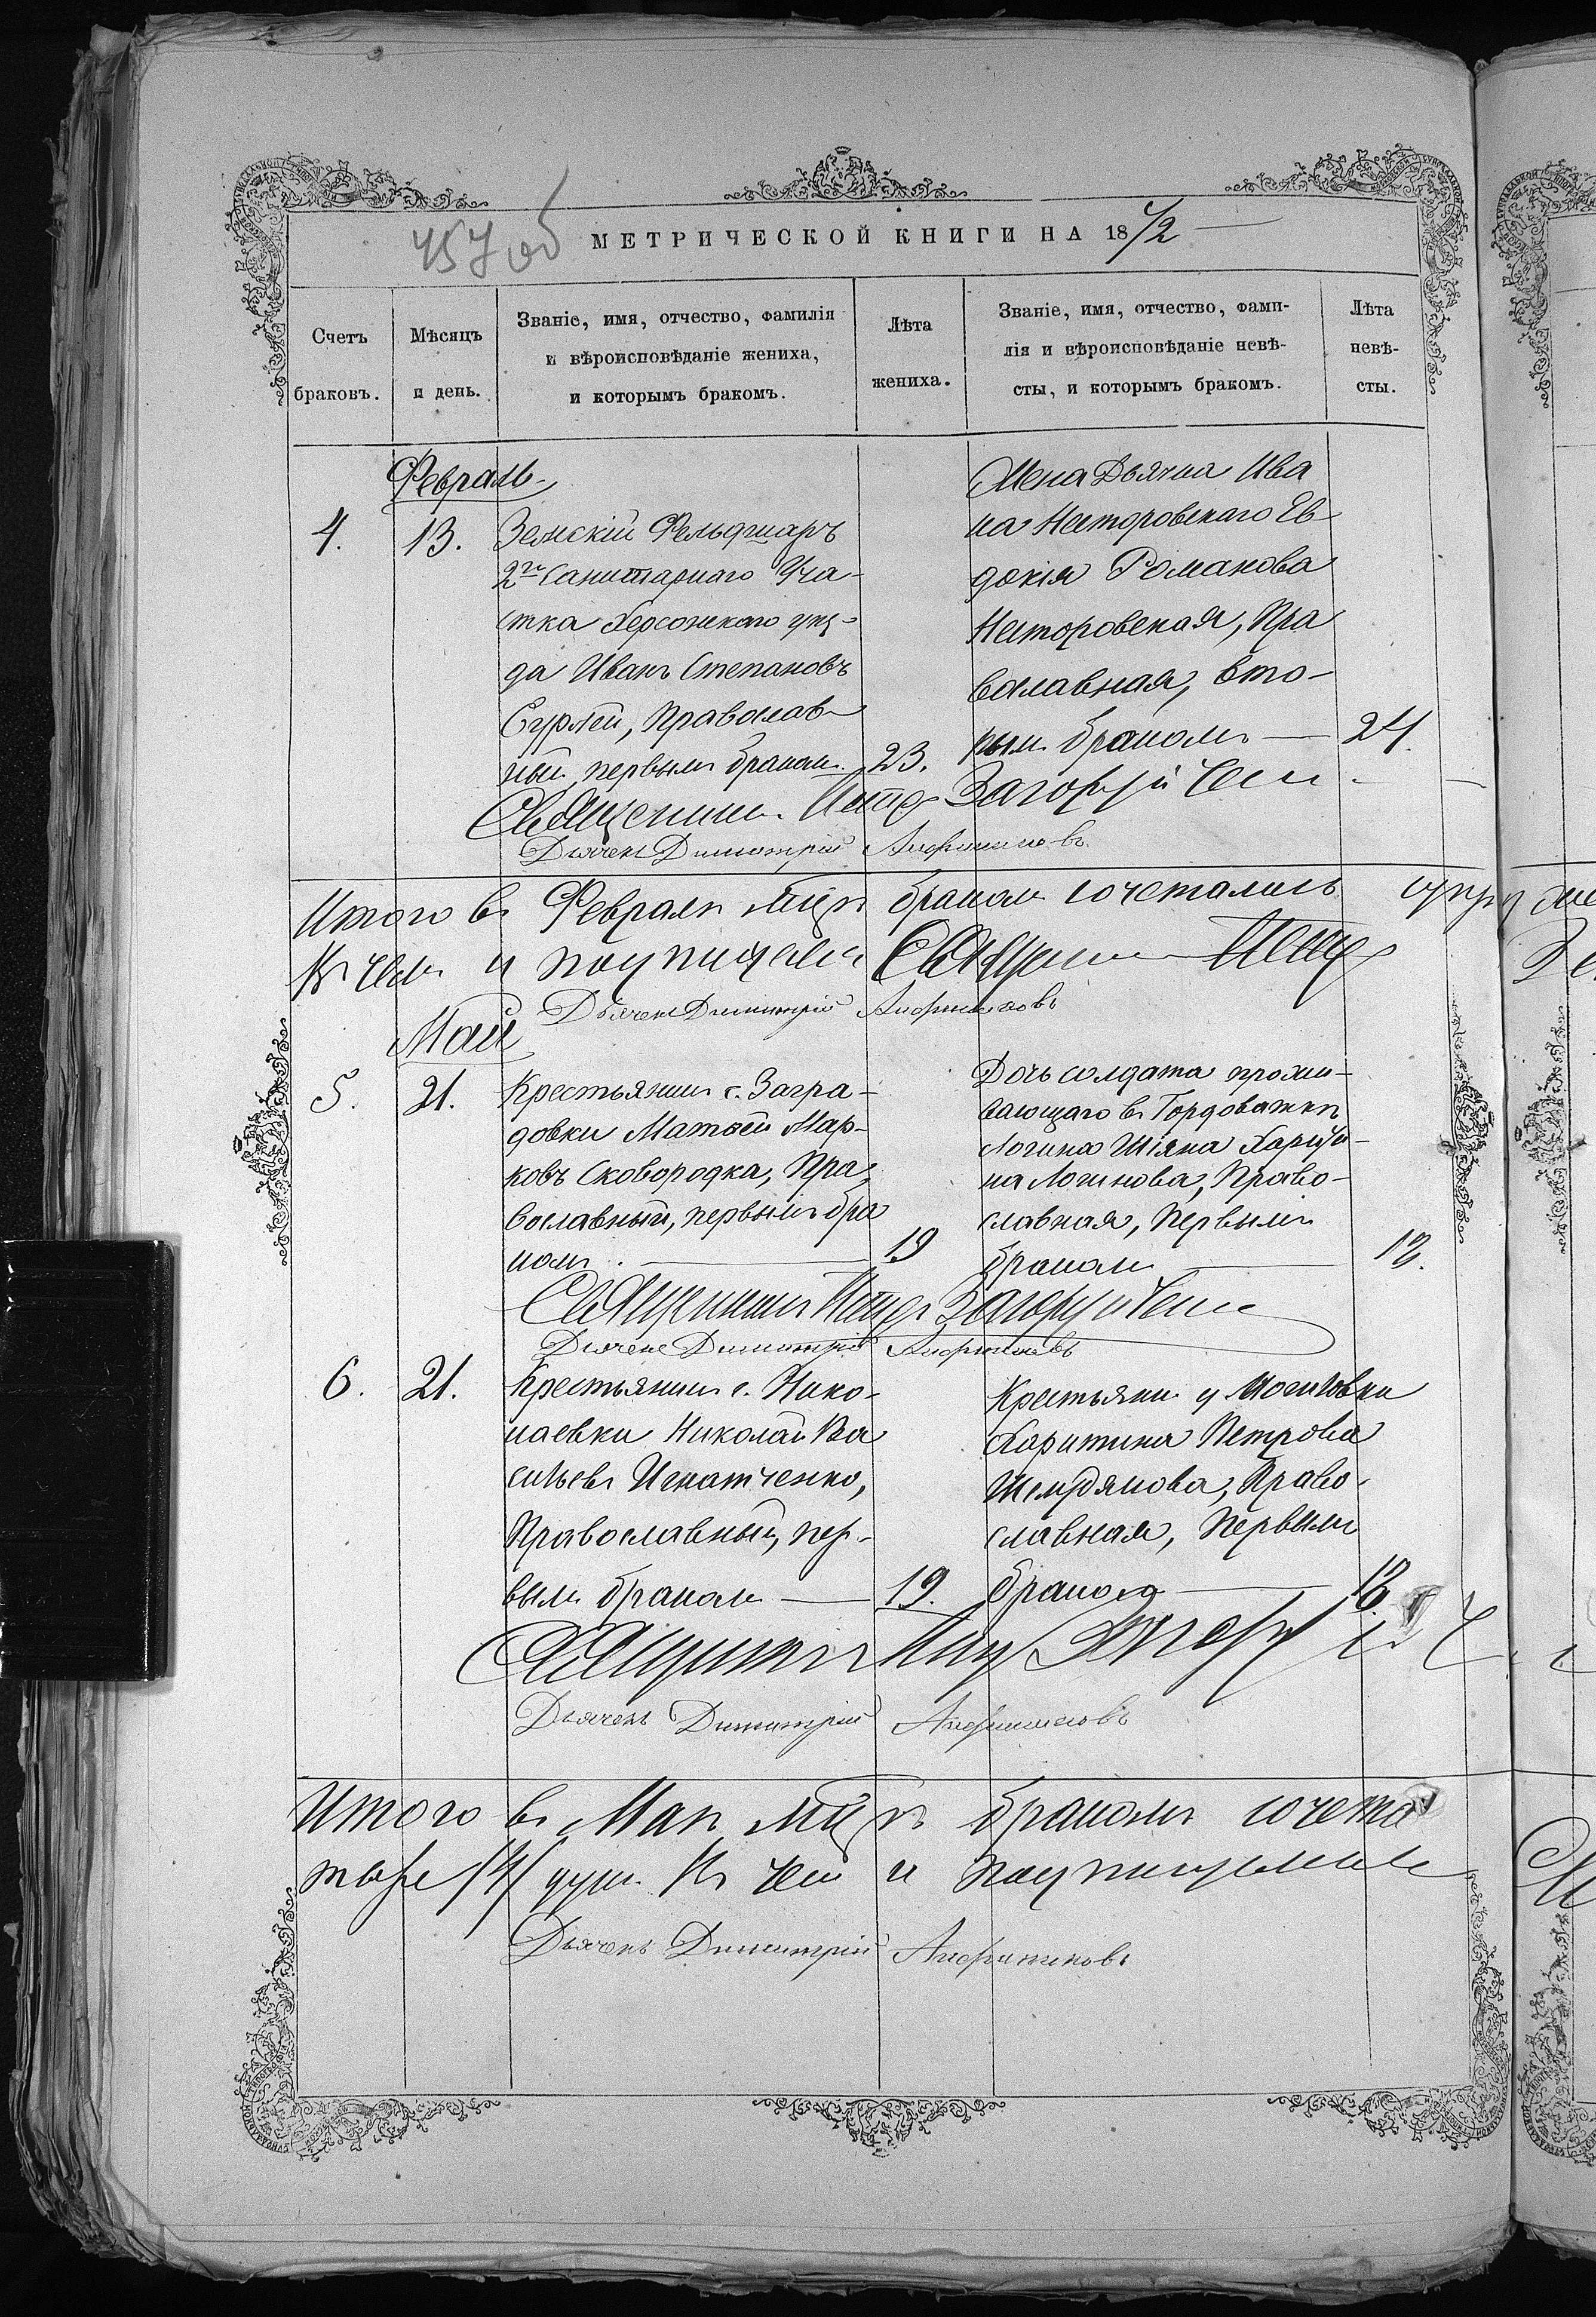 457 об
МЕТРИЧЕСКОЙ КНИГИ НА 1872
Счетъ браковъ.
Мѣсяцъ и день.
Званіе, имя, отчество, фамилія
и вѣроисповѣданіе жениха,
и которымъ бракомъ.
Лѣта жениха.
Званіе, имя, отчество, фами-
лія и вѣроисповѣданіе невѣ-
сты, и которымъ бракомъ.
Лѣта невѣ-
сты.
Февраль
4.
13.
Земскій Фельдшаръ
2го Санитарнаго Уча-
стка Херсонскаго уѣз-
да Иванъ Степановъ
Православ-
ный первымъ бракомъ
23.
Дьячка Ива
на Несторовскаго Ев
докія Романова
Несторовская, Пра
вославная, вто-
рымъ бракомъ
24.
Священникъ Петръ Загоруйченко
Дьячекъ Димитрій
Итого въ Февралѣ мцѣ бракомъ сочеталось
Въ чемъ и подписуемся Священникъ Петръ
Дьячекъ Димитрій
Май
5.
21.
Крестьянинъ с. Загра-
довки Матѳей Мар-
ковъ Сковородка, Пра
вославный, первымъ бра
комъ
19
Дочь солдата прожи-
вающаго въ Гордоваткѣ
Логина Шіяна Харити-
на Логинова, Право-
славная, Первымъ
бракомъ
18.
Священникъ Петръ Загоруйченко
Дьячекъ Димитрій
6.
21.
Крестьянинъ с. Нико-
лаевки Николай Ва
сильевъ Игнатченко,
Православный, пер-
вымъ бракомъ
19.
Крестьянка
Харитина Петрова
Право-
славная, Первымъ
бракомъ
18.
Священникъ Петръ
Дьячекъ Димитрій
Итого въ Маѣ мцѣ бракомъ сочета
/4/ душ. Въ чемъ и подписуемся
Дьячекъ Димитрій